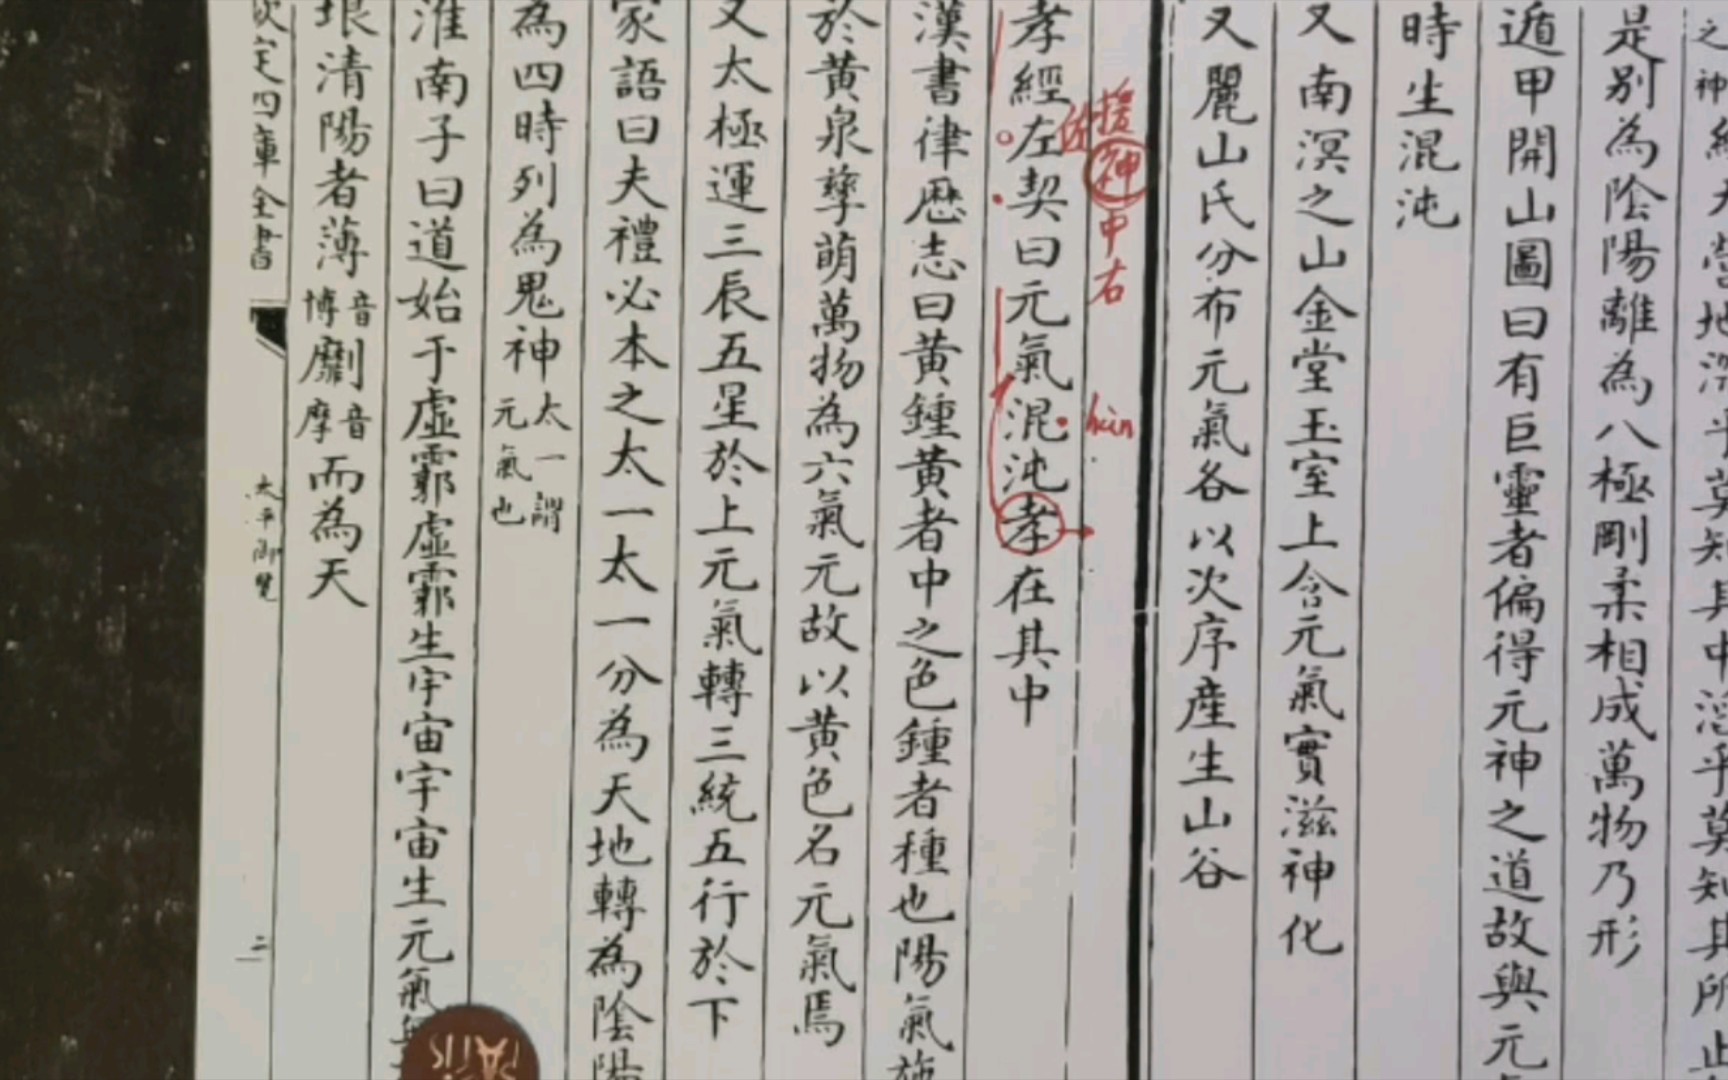 之神
是别為陰陽離為八極剛柔相成萬物乃形
遁甲開山圖曰有巨靈者偏得元神之道故與元
時生混沌
又南溟之山金堂玉室上含元氣實滋神化
又麗山氏分布元氣各以次序產生山谷
援神
中右
孝經左契曰元氣混沌孝在其中
漢書律歷志曰黄鍾黄者中之色鍾者種也陽氣施
於黄泉孳萌萬物為六氣元故以黄色名元氣焉
又太極運三辰五星於上元氣轉三統五行於下
家語曰夫禮必本之太一太一分為天地轉為陰陽
為四時列為鬼神太一謂元氣也
淮南子曰道始于虛霩虛霩生宇宙宇宙生元氣
垠清陽者薄音博劘音摩而為天
欽定四庫全書
太平御覽
二